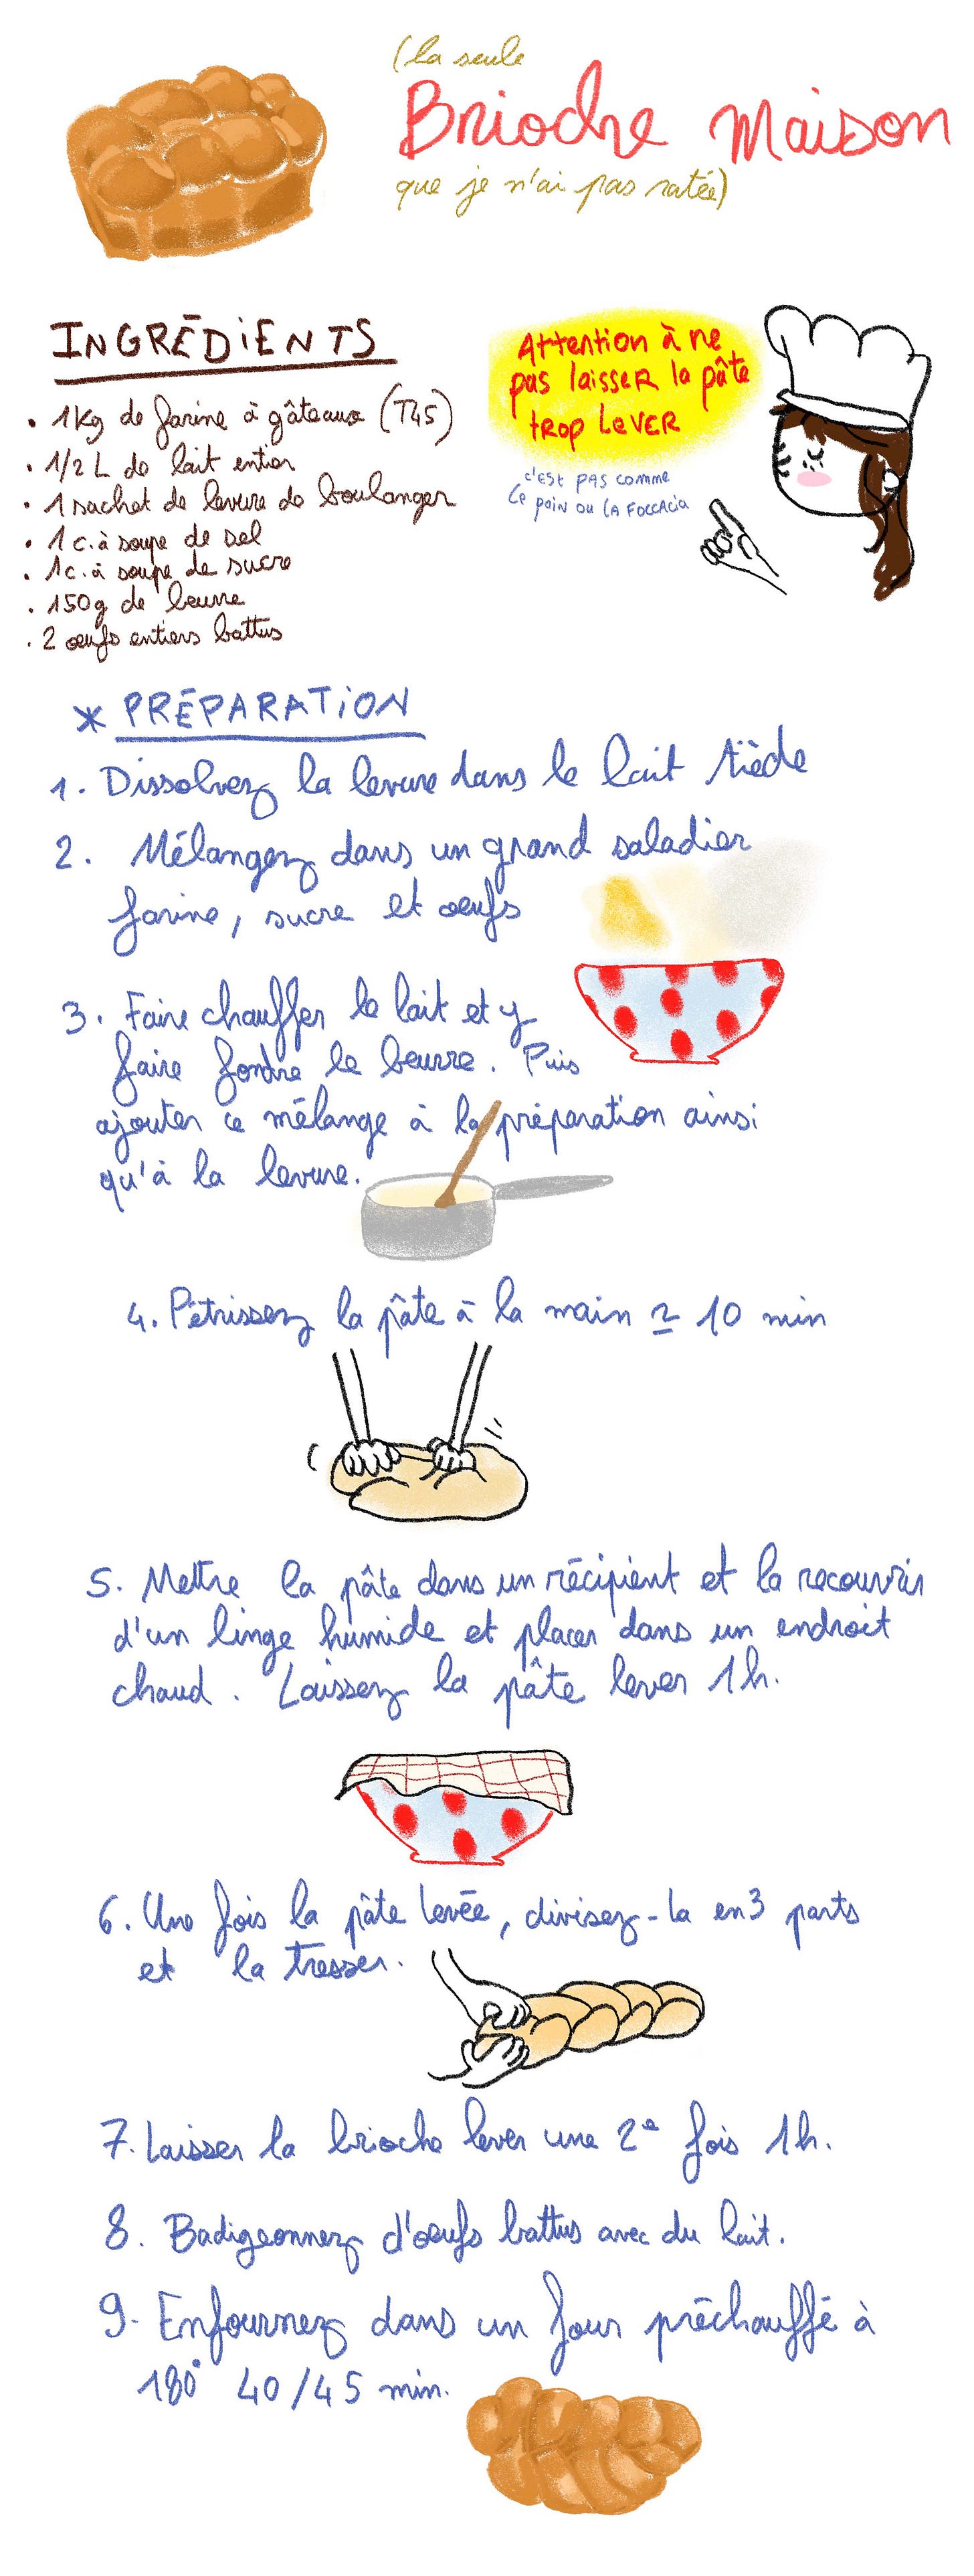 (la seule
Brioche Maison
que je n'ai pas ratée)
INGRÉDIENTS
• 1Kg de farine à gâteaux (T45)
• 1/2 L de lait entier
• 1 sachet de levure de boulanger
• 1 c. à soupe de sel
• 1c. à soupe de sucre
• 150g de beurre
• 2 œufs entiers battus
Attention à ne
pas laisser la pâte
trop lever
c'est pas comme
le pain ou la foccacia
* PRÉPARATION
1. Dissolvez la levure dans le lait tiède
2. Mélangez dans un grand saladier
farine, sucre et œufs
3. Faire chauffer le lait et y
faire fondre le beurre. Puis
ajouter ce mélange à la préparation ainsi
qu'à la levure.
4. Pétrissez la pâte à la main ≃ 10 min
5. Mettre la pâte dans un récipient et la recouvrir
d'un linge humide et placer dans un endroit
chaud. Laissez la pâte lever 1h.
6. Une fois la pâte levée, divisez-la en 3 parts
et la tresser.
7. Laisser la brioche lever une 2e fois 1h.
8. Badigeonnez d'œufs battus avec du lait.
9. Enfournez dans un four préchauffé à
180° 40/45 min.